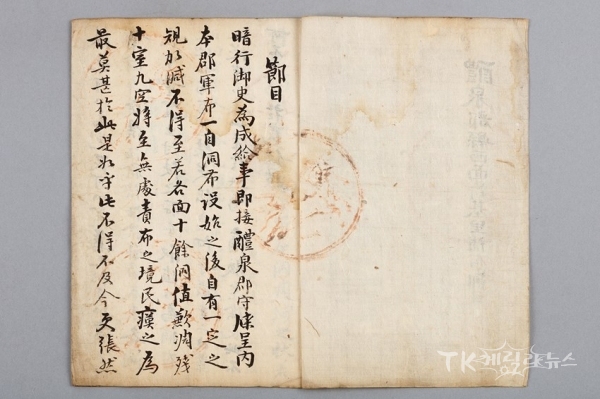 節目
暗行御史爲成給事卽接醴泉郡守牒呈內
本郡軍布一自洞布設始之後自有一定之
規加減不得至若各面十餘洞値歉凋殘
十室九空將至無處責布之境民瘼之爲
最莫甚於此是如乎此不得不及今更張然
TK게릴라뉴스